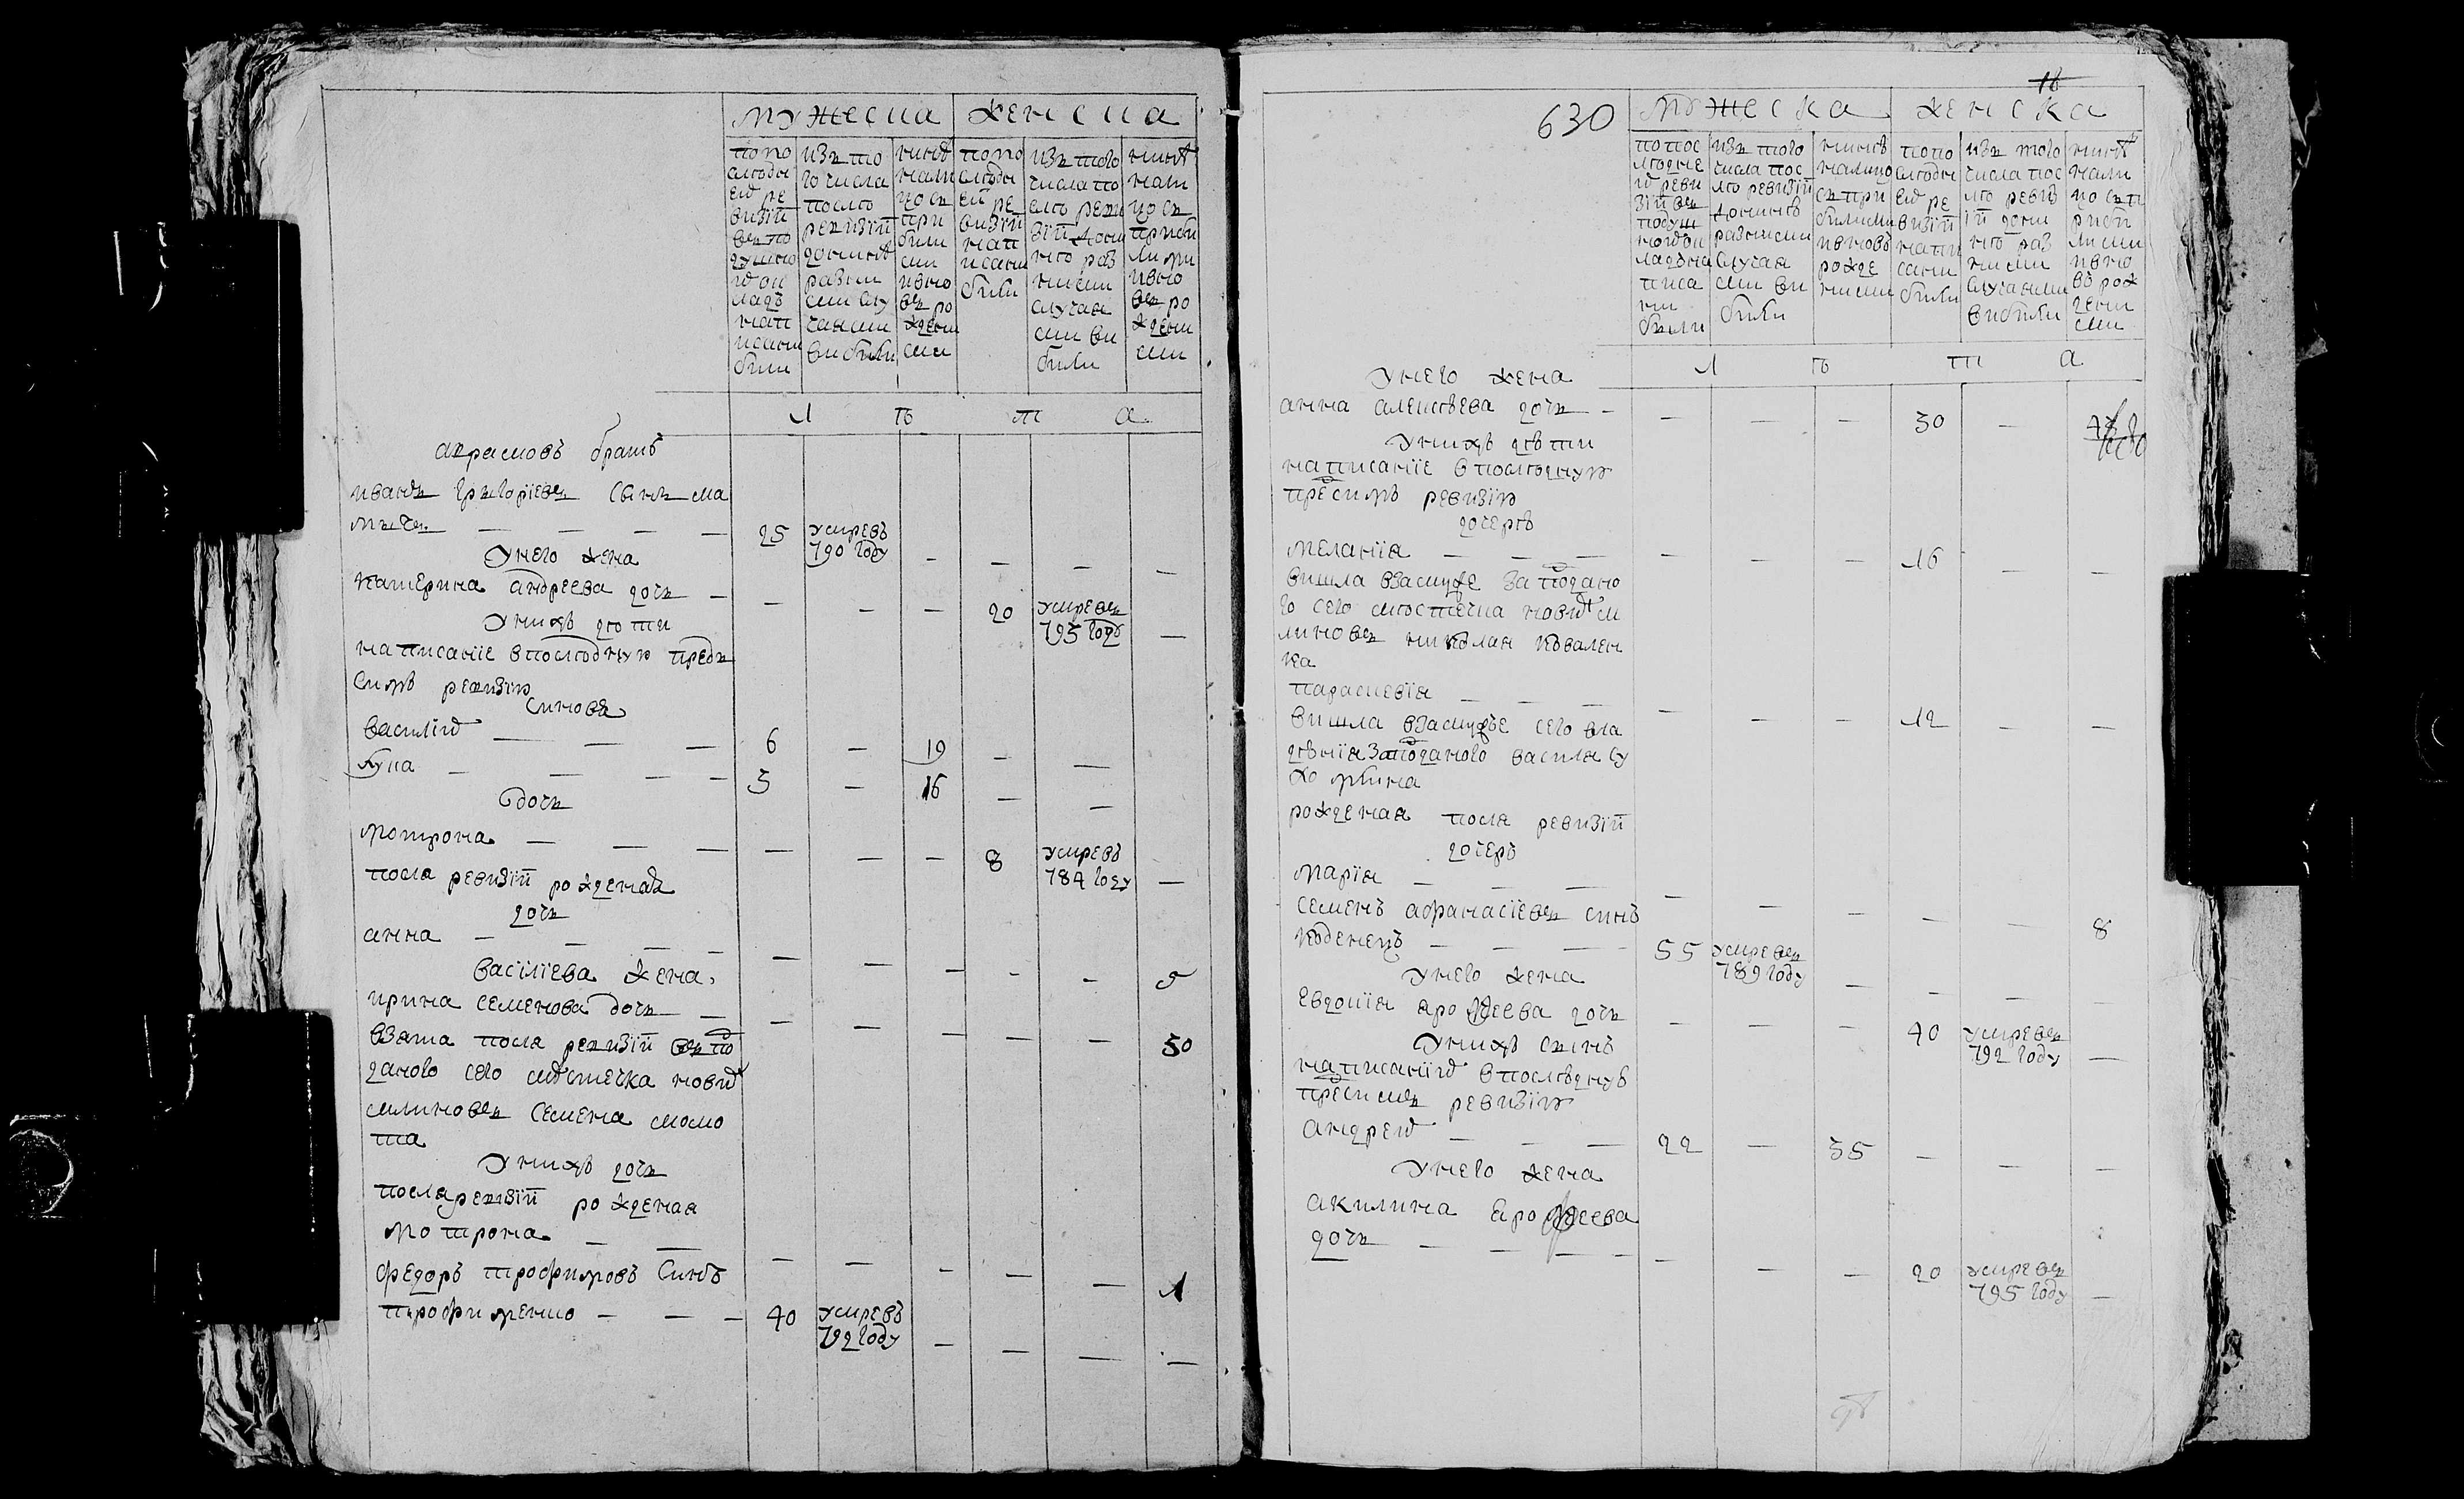 мужеска женска
попо
следн
ей ре
визій
въ по
душно
й ок
ладъ
нап
исани
били
изъ то
го числа
после
ревизій
до нине
разни
ми слу
чаями
вибили
нине
нали
цо съ
при
били
ми
и вно
въ ро
ждени
ми
попо
следн
ей ре
визій
нап
исани
били
изъ того
числа по
сле реви
зій дони
не раз
ними
случая
ми ви
били
нине
нали
цо съ
приби
лими
и вно
въ ро
ждени
ми
л ѣ т а
аврамовъ братъ
иванъ григоріевъ синъ ма
25 умревъ
790 году
у него жена
катерина андреева дочъ
20 умревъ
795 году
у нихъ дѣти
написаніе в последную предъ
симъ ревизію
синовя
василій 6 19
лука 3 16
дочъ
мотрона 8 умревъ
784 году
посля ревизій рожденая
дочъ
анна 5
василіева жена
ирина семенова дочъ 30
взята посля ревизій въ по
даного сего местечка новий
млиновъ семена момо
та
у нихъ дочъ
посля ревизій рожденая
мотрона 1
федоръ трофимовъ синъ
трофименко 40 умревъ
792 году
630
16
мужеска женска
попос
ледне
й реви
зій въ
подуш
ной ок
ладъ на
писа
ни
били
изъ того
числа пос
ле ревизій
донине
разними
случая
ми ви
били
нине
налицо
съ при
билими
и вновь
рожде
ними
попо
следн
ей ре
визій
напи
сани
били
изъ того
числа пос
ле ревиз
ій дони
не раз
ними
случаями
вибили
нине
нали
цо съ п
риби
лими
и вно
въ рож
дени
ми
л ѣ т а
у него жена
анна алексѣева дочъ 30
у нихъ дѣти
написаніе в последную
предсимъ ревизію
дочерѣ
меланія 16
вишла взамуже за подано
го сего местечка новий м
линовъ николая ковален
ка
параскевія 12
вишла взамужъе сего вла
дѣнія за поданого василя су
хомлина
рожденая посля ревизій
дочеръ
марія 8
семенъ афанасіевъ синъ
коденецъ 55 умревъ
789 году
у него жена
евдокія ярофеева дочъ 40 умревъ
792 году
у нихъ синъ
написаній в последную
предсимъ ревизію
андрей 22 35
у него жена
акилина ярофеева
дочъ 20 умревъ
795 году